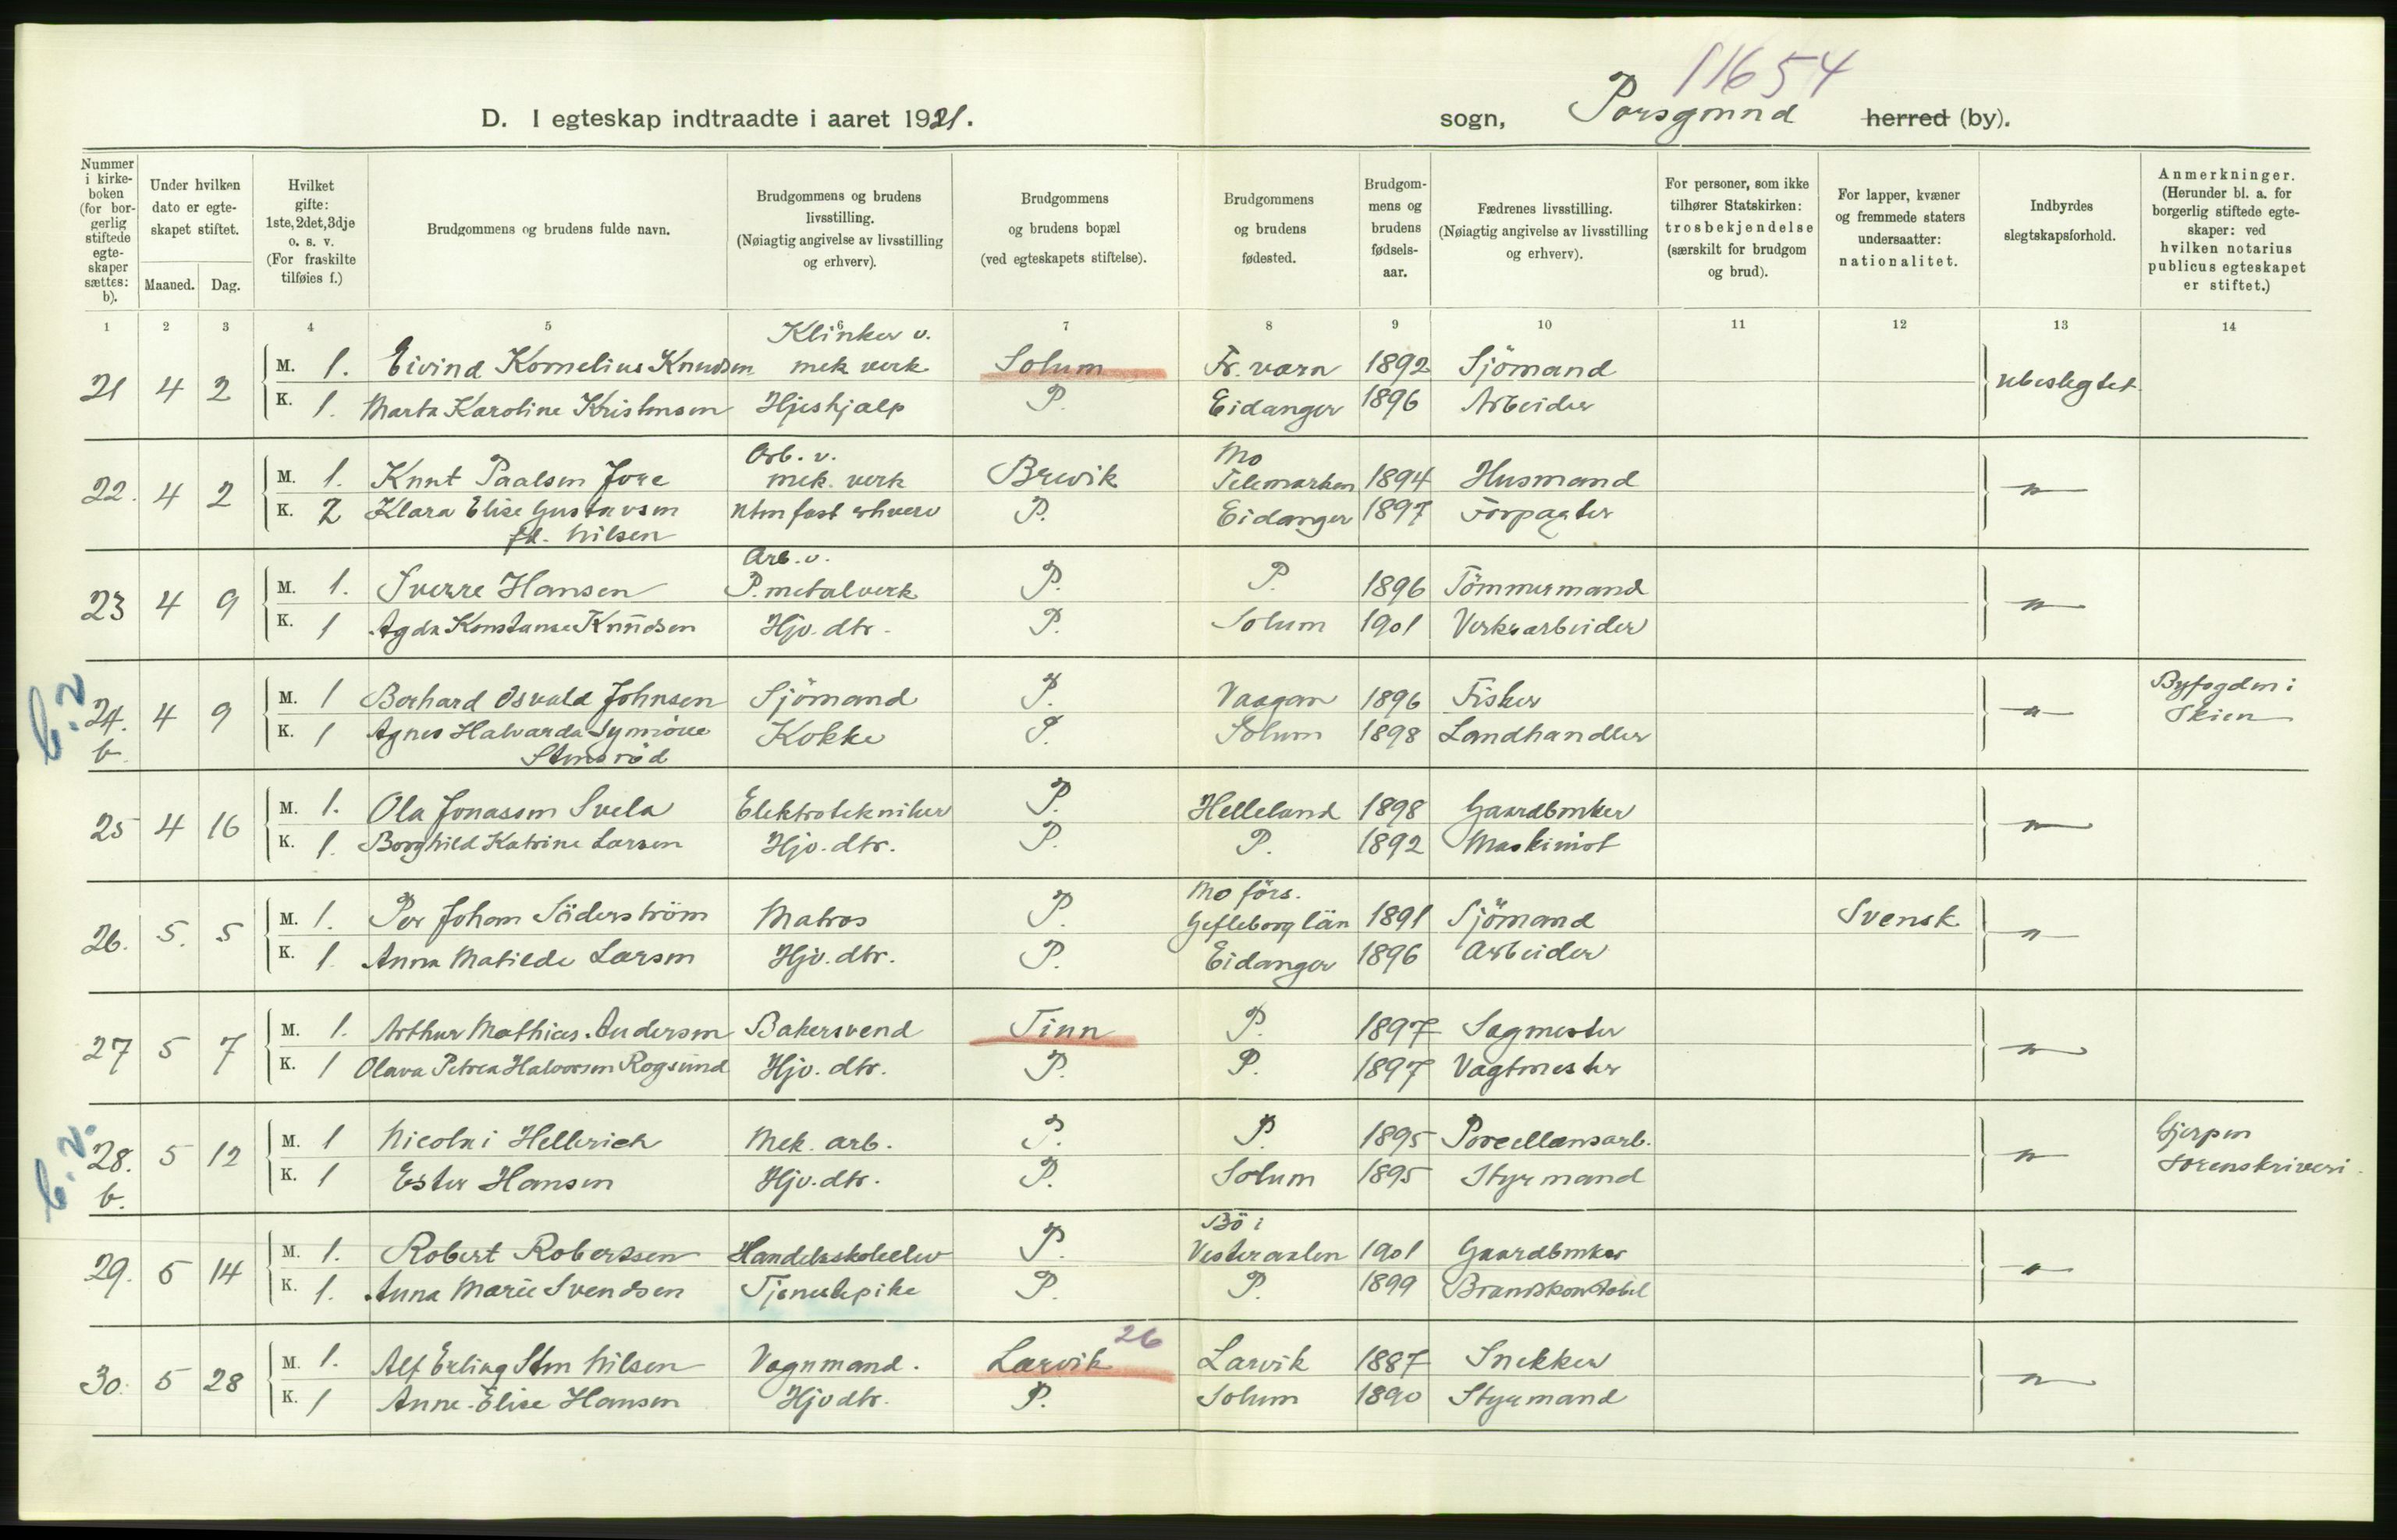 11654
D. I egteskap indtraadte i aaret 1921. sogn, Porsgrund herred (by).
Nummer i kirkeboken (for borgerlig stiftede egteskaper sættes: b). Under hvilken dato er egteskapet stiftet. Maaned. Dag. Hvilket gifte: 1ste, 2det, 3dje o. s. v. (For fraskilte tilføies f.) Brudgommens og brudens fulde navn. Brudgommens og brudens livsstilling. (Nøiagtig angivelse av livsstilling og erhverv). Brudgommens og brudens bopæl (ved egteskapets stiftelse). Brudgommens og brudens fødested. Brudgommens og brudens fødselsaar. Fædrenes livsstilling. (Nøiagtig angivelse av livsstilling og erhverv). For personer, som ikke tilhører Statskirken: trosbekjendelse (særskilt for brudgom og brud). For lapper, kvæner og fremmede staters undersaatter: nationalitet. Indbyrdes slegtskapsforhold. Anmerkninger. (Herunder bl. a. for borgerlig stiftede egteskaper: ved hvilken notarius publicus egteskapet er stiftet.)
1 2 3 4 5 6 7 8 9 10 11 12 13 14
Klinker v.
21 4 2 M. 1. Eivind Kornelius Knudsen mek verk Solum Fr. værn 1892 Sjömand ubeslegtet
K. 1. Marta Karoline Kristensen Hjeshjælp P. Eidanger 1896 Arbeider
Arb. v. Mo
22. 4 2 M. 1. Knut Paalsen Jore mek. verk Brevik Telemarken 1894 Husmand "
K. 2 Klara Elise Gustavsen uten fast erhverv P. Eidanger 1897 Forpagter
fd. Nilsen
Arb. v.
23 4 9 M. 1. Sverre Hansen P. metalverk P. P. 1896 Tömmermand "
K. 1 Agda Konstanse Knudsen Hjv. dtr. P. Solum 1901 Verksarbeider
b. 2
24. b. 4 9 M. 1 Borhard Osvald Johnsen Sjömand P. Vaagan 1896 Fisker " Byfogden i Skien
K. 1 Agnes Halvarda Synnöve Kokke P. Solum 1898 Landhandler
Stensröd
25 4 16 M. 1. Ola Jonassen Svela Elektrotekniker P. Helleland 1898 Gaardbruker "
K. 1. Borghild Katrine Larsen Hjv. dtr. P. P. 1892 Maskinist
Mo förs.
26. 5. 5 M. 1. Per Johan Söderström Matros P. Gefleborg län 1891 Sjömand Svensk "
K. 1. Anna Matilde Larsen Hjv. dtr. P. Eidanger 1896 Arbeider
27 5 7 M. 1. Arthur Mathias Andersen Bakersvend Tinn P. 1897 Sagmester "
K. 1 Olava Petrea Halvorsen Rogsund Hjv. dtr. P. P. 1897 Vagtmester
b. 2.
28. b. 5 12 M. 1 Nicolai Hellerich Mek. arb. P. P. 1895 Porcellænsarb. " Gjerpen Sorenskriveri
K. 1 Ester Hansen Hjv. dtr. P. Solum 1895 Styrmand
Bö i
29. 5 14 M. 1. Robert Robertsen Handelsskoleelev P. Vesteraalen 1901 Gaardbruker "
K. 1. Anna Marie Svendsen Tjenestepike P. P. 1899 Brandkonstabel
26
30. 5 28 M. 1. Alf Erling Sten Nilsen Vognmand. Larvik Larvik 1887 Snekker "
K. 1 Anne Elise Hansen Hjv dtr. P. Solum 1890 Styrmand